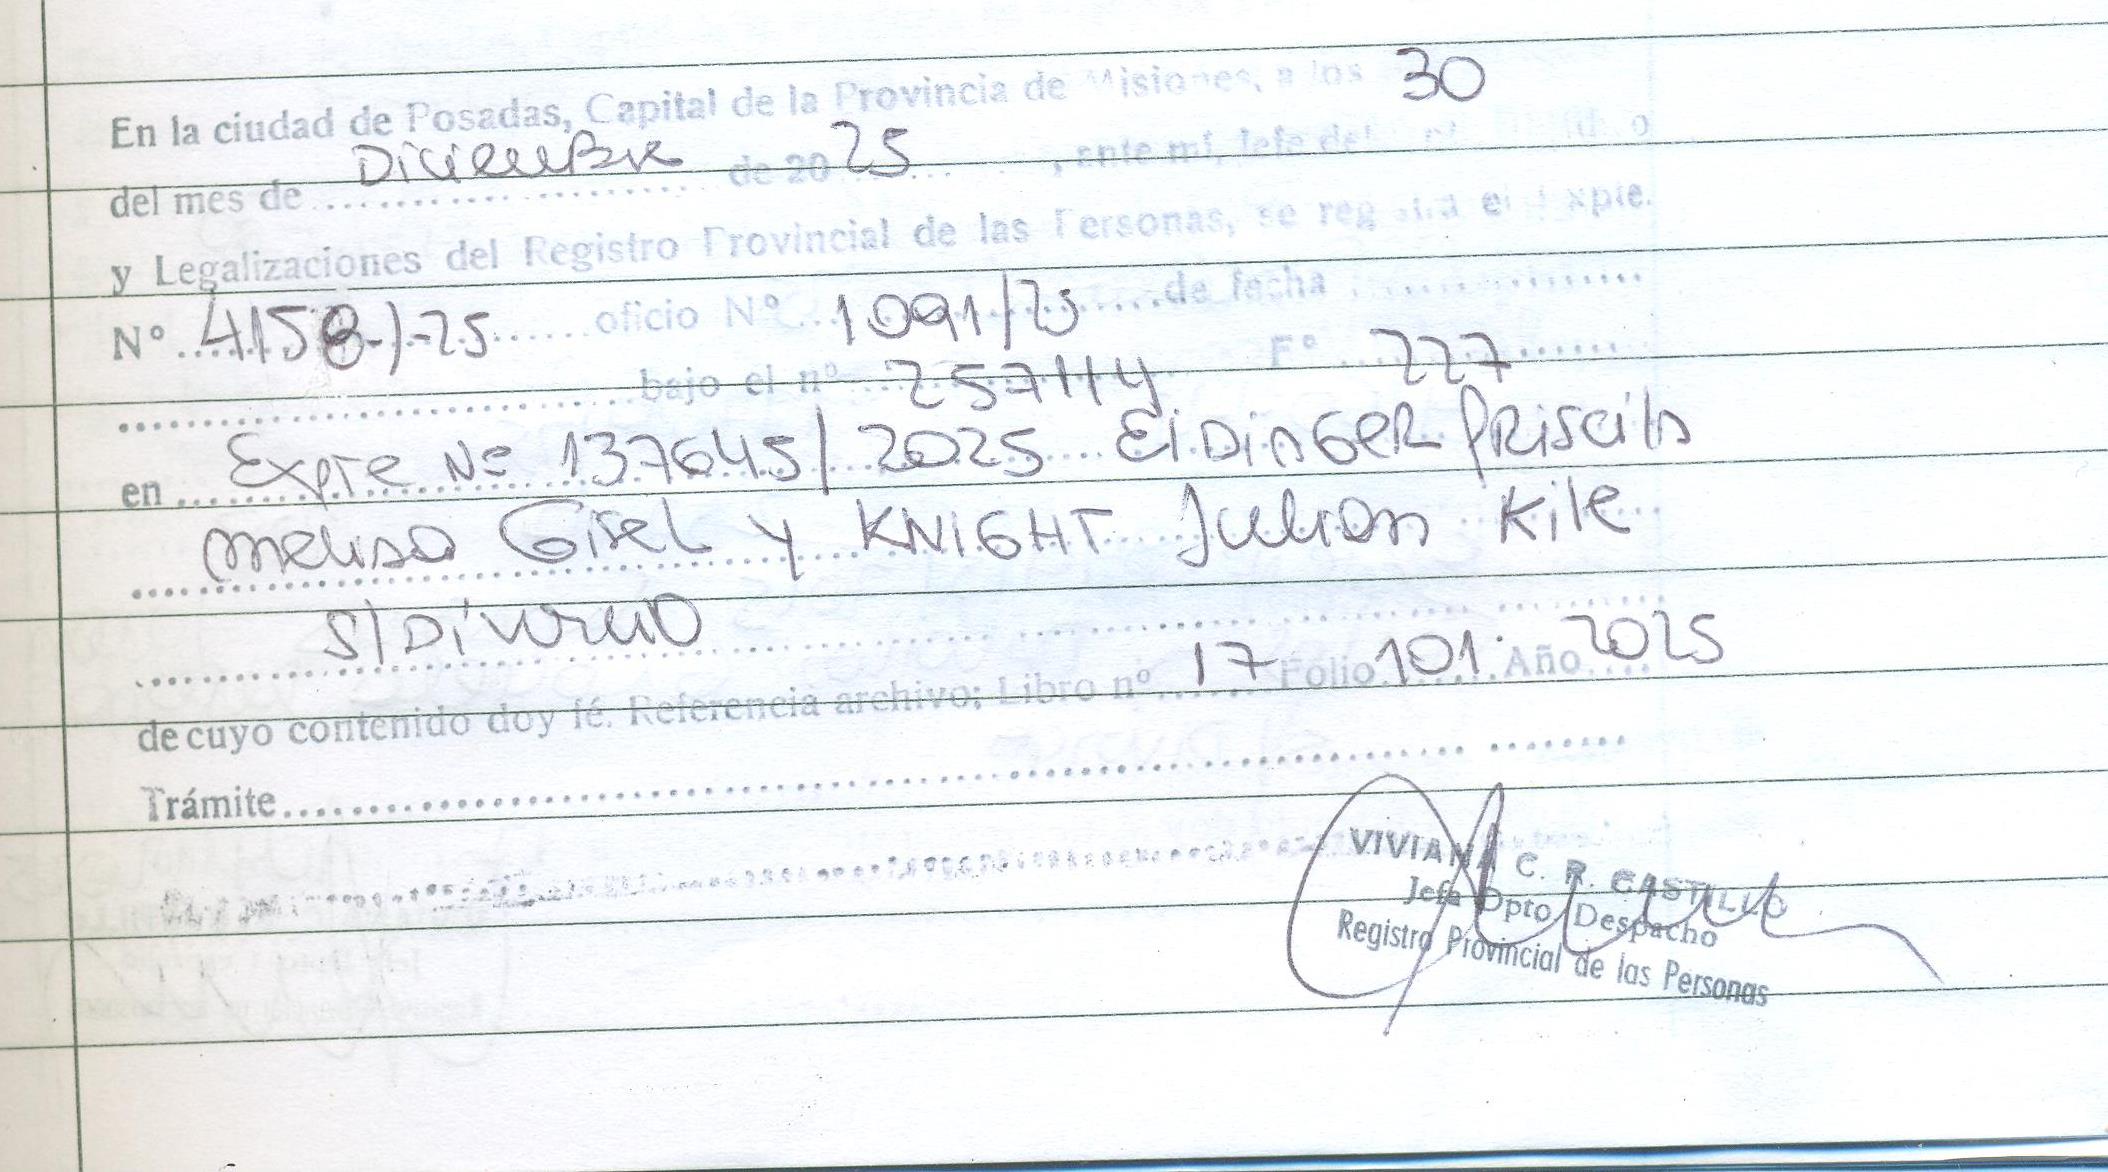 En la ciudad de Posadas, Capital de la Provincia de Misiones, a los 30
del mes de Diciembre de 20 25, ante mí, Jefe del
y Legalizaciones del Registro Provincial de las Personas, se registra el Expte.
N° 4158-/-25 oficio N° 1091/25 de fecha
bajo el n° 257114 F° 227
en Expte Nº 137645/2025 EIDINGER Priscila
Melisa Gisel y KNIGHT Julian Kile
S/DIVORCIO
de cuyo contenido doy fé. Referencia archivo; Libro nº 17 Folio 101. Año 2025
Trámite
VIVIANA C. R. CASTILLO
Jefa Dpto Despacho
Registro Provincial de las Personas